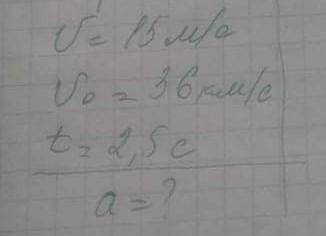 v = 15 м/с
v₀ = 36 км/с
t = 2,5 с
a = ?